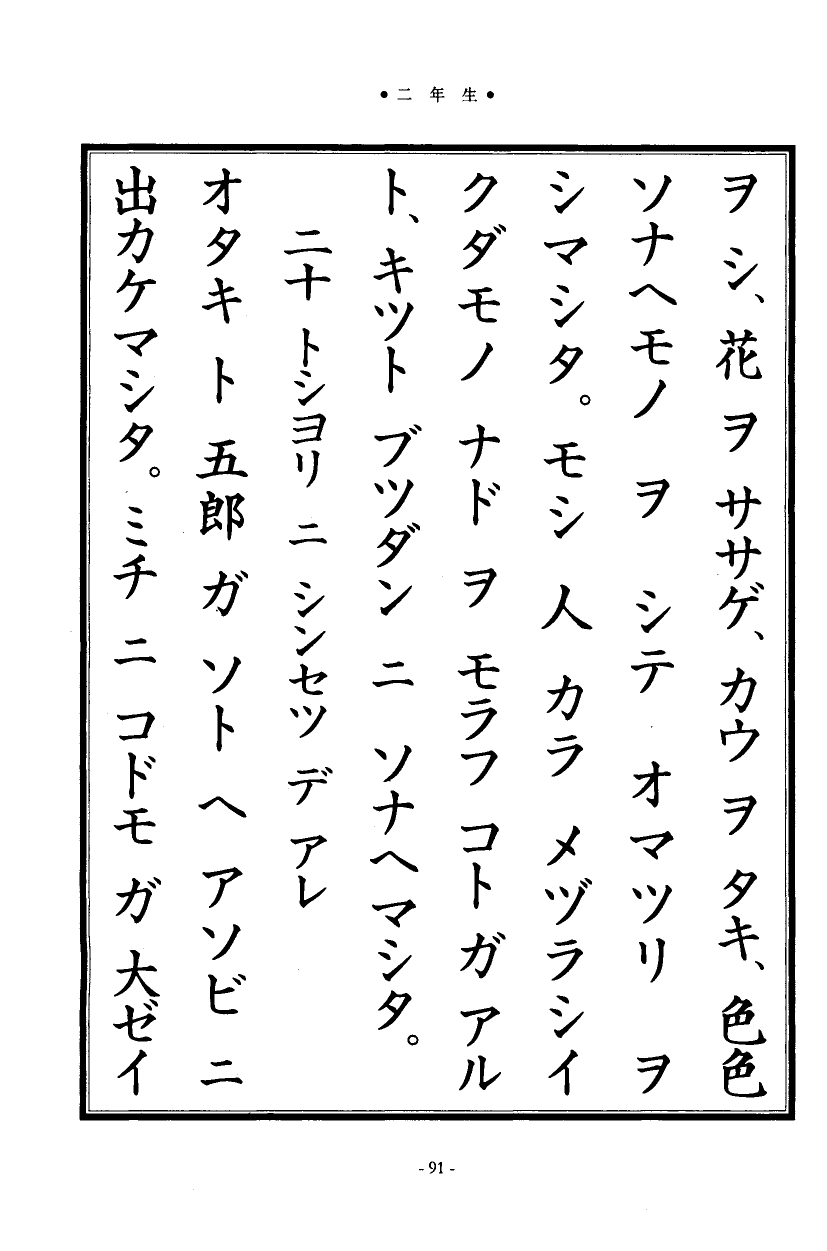 • 二年生 •
ヲ シ、花 ヲ ササゲ、カウ ヲ タキ、色色
ソナヘモノ ヲ シテ オマツリ ヲ
シマシタ。モシ 人 カラ メヅラシイ
クダモノ ナド ヲ モラフ コトガ アル
ト、キツト ブツダン ニ ソナヘマシタ。
二十 トシヨリ ニ シンセツ デ アレ
オタキ ト 五郎 ガ ソト ヘ アソビ ニ
出カケマシタ。ミチ ニ コドモ ガ 大ゼイ
- 91 -